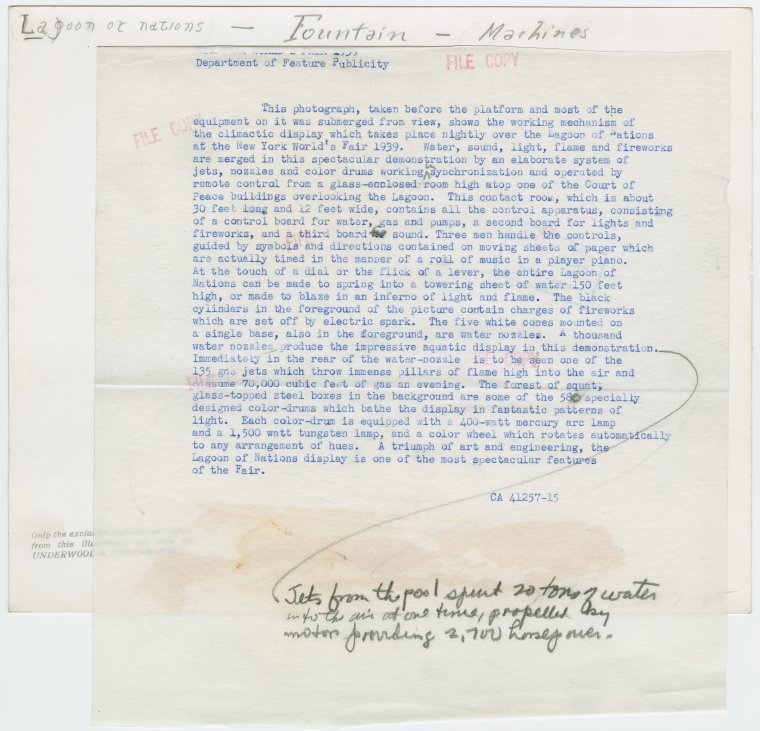 Lagoon of nations — Fountain — Machines
Department of Feature Publicity
FILE COPY
FILE COPY
This photograph, taken before the platform and most of the
equipment on it was submerged from view, shows the working mechanism of
the climactic display which takes place nightly over the Lagoon of "ations
at the New York World's Fair 1939. Water, sound, light, flame and fireworks
are merged in this spectacular demonstration by an elaborate system of
jets, nozzles and color drums working synchronization and operated by
remote control from a glass-enclosed room high atop one of the Court of
Peace buildings overlooking the Lagoon. This contact room, which is about
30 feet long and 12 feet wide, contains all the control apparatus, consisting
of a control board for water, gas and pumps, a second board for lights and
fireworks, and a third board sound. Three men handle the controls,
guided by symbols and directions contained on moving sheets of paper which
are actually timed in the manner of a roll of music in a player piano.
At the touch of a dial or the flick of a lever, the entire Lagoon of
Nations can be made to spring into a towering sheet of water 150 feet
high, or made to blaze in an inferno of light and flame. The black
cylinders in the foreground of the picture contain charges of fireworks
which are set off by electric spark. The five white cones mounted on
a single base, also in the foreground, are water nozzles. A thousand
water nozzles produce the impressive aquatic display in this demonstration.
Immediately in the rear of the water-nozzle is to be seen one of the
135 gas jets which throw immense pillars of flame high into the air and
70,000 cubic feet of gas an evening. The forest of squat,
glass-topped steel boxes in the background are some of the 580 specially
designed color-drums which bathe the display in fantastic patterns of
light. Each color-drum is equipped with a 400-watt mercury arc lamp
and a 1,500 watt tungsten lamp, and a color wheel which rotates automatically
to any arrangement of hues. A triumph of art and engineering, the
Lagoon of Nations display is one of the most spectacular features
of the Fair.
CA 41257-15
Only the exclu
from this illu
UNDERWOOD
Jets from the pool spurt 20 tons of water
into the air at one time, propelled by
motors providing 2,700 horsepower.